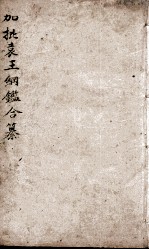 加批袁王綱鑑合纂